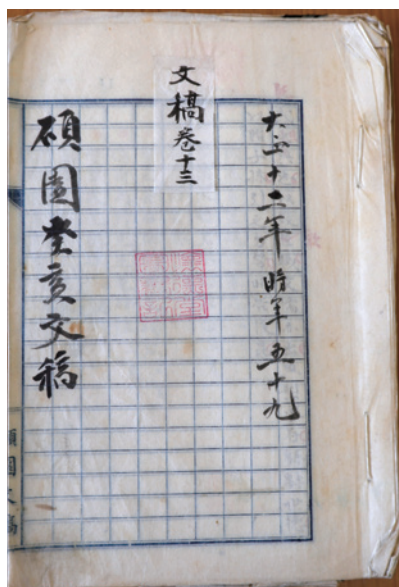 大正十二年 時年五十九
文稿卷十三
碩園癸亥文稿
碩園文稿